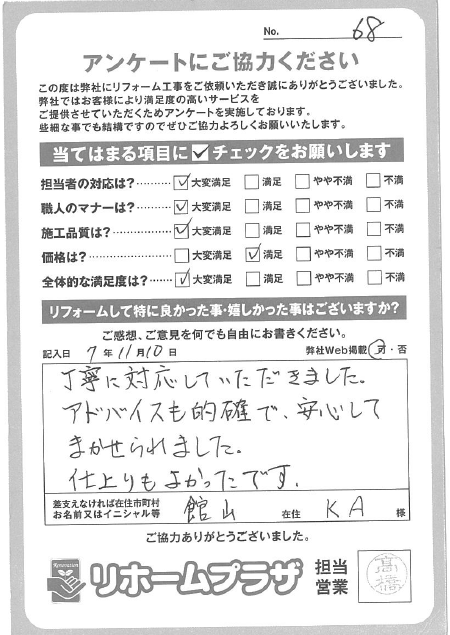 No. 68
アンケートにご協力ください
この度は弊社にリフォーム工事をご依頼いただき誠にありがとうございました。
弊社ではお客様により満足度の高いサービスを
ご提供させていただくためアンケートを実施しております。
些細な事でも結構ですのでぜひご協力よろしくお願いいたします。
当てはまる項目に☑チェックをお願いします
担当者の対応は?………… ☑大変満足 □満足 □やや不満 □不満
職人のマナーは?………… ☑大変満足 □満足 □やや不満 □不満
施工品質は?……………… ☑大変満足 □満足 □やや不満 □不満
価格は? □大変満足 ☑満足 □やや不満 □不満
全体的な満足度は?……… ☑大変満足 □満足 □やや不満 □不満
リフォームして特に良かった事・嬉しかった事はございますか?
ご感想、ご意見を何でも自由にお書きください。
記入日 7年11月10日 弊社Web掲載 可・否
丁寧に対応していただきました。
アドバイスも的確で、安心して
まかせられました。
仕上りもよかったです.
差支えなければ在住市町村
お名前又はイニシャル等 館山 在住 KA 様
ご協力ありがとうございました。
Renovation
リホームプラザ 担当
営業 高橋